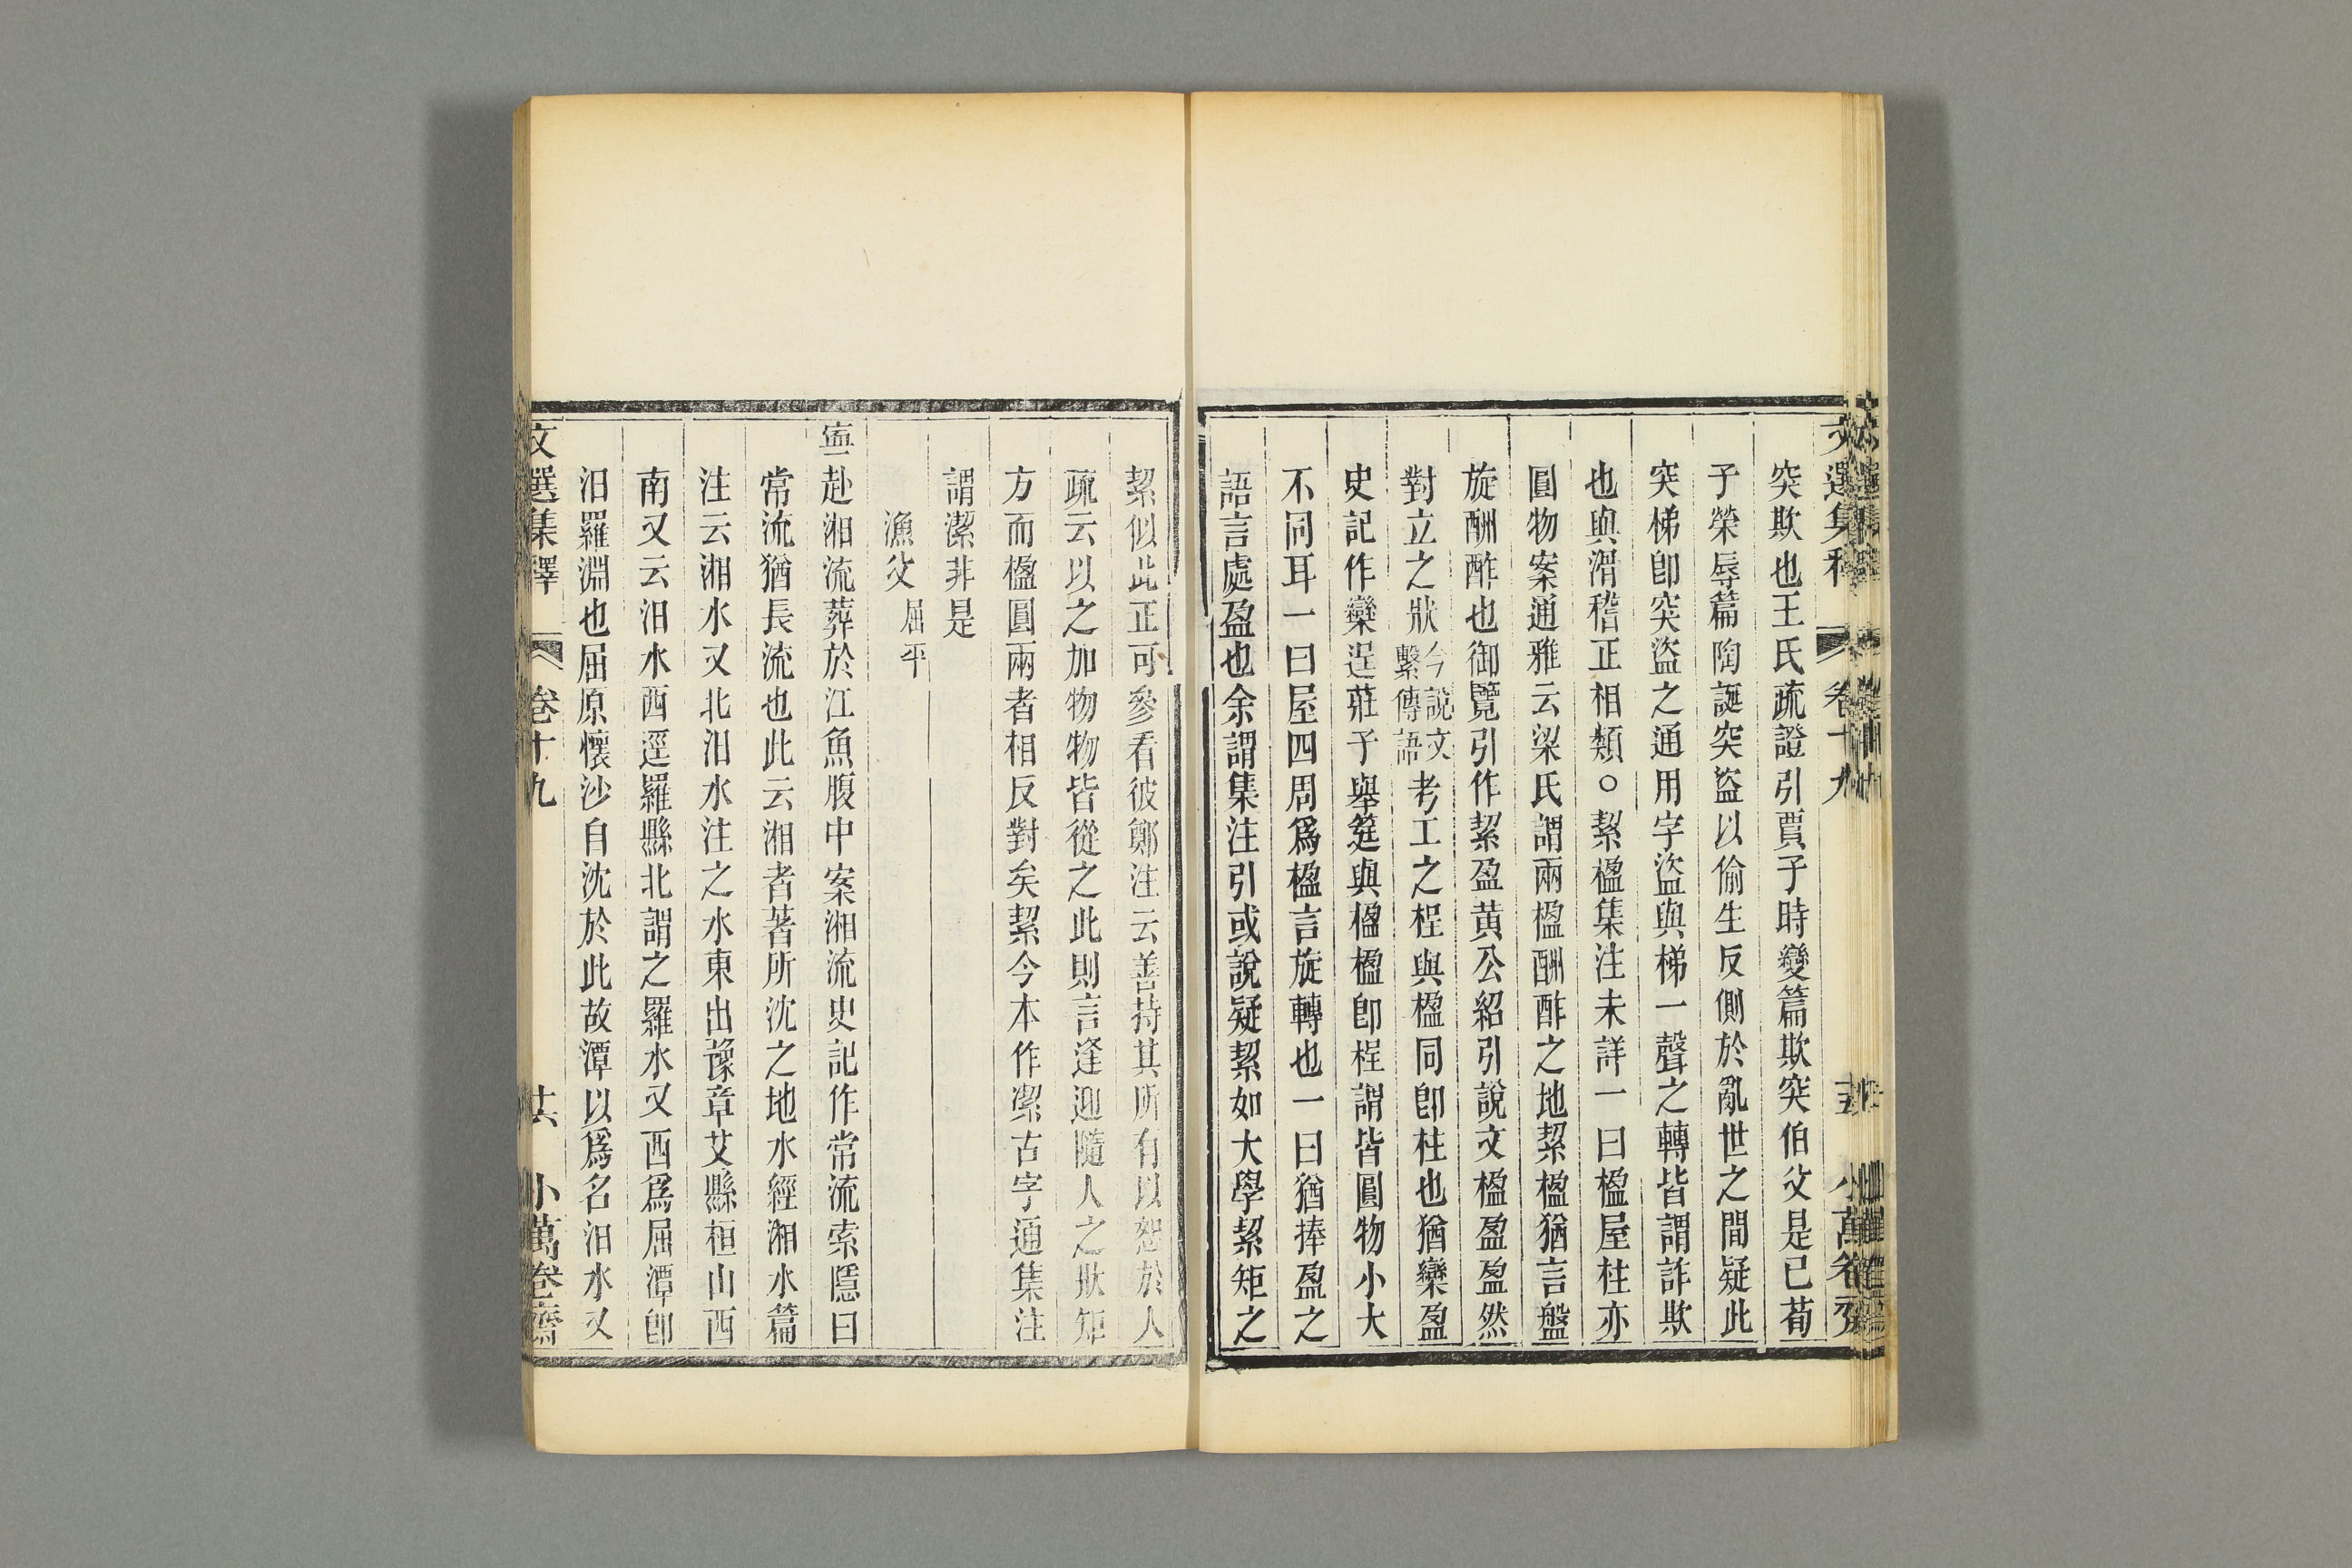 突欺也王氏疏證引賈子時變篇欺突伯父是已荀
子榮辱篇陶誕突盜以偷生反側於亂世之間疑此
突梯卽突盜之通用字盜與梯一聲之轉皆謂詐欺
也與滑稽正相類○絜楹集注未詳一曰楹屋柱亦
圓物案通雅云梁氏謂兩楹酬酢之地絜楹猶言盤
旋酬酢也御覽引作絜盈黃公紹引說文楹盈盈然
對立之狀今說文繫傳語考工之桯與楹同卽柱也猶欒盈
史記作欒逞莊子舉筳與楹楹卽桯謂皆圓物小大
不同耳一曰屋四周爲楹言旋轉也一曰猶捧盈之
語言處盈也余謂集注引或說疑絜如大學絜矩之
絜似此正可參看彼鄭注云善持其所有以恕於人
疏云以之加物物皆從之此則言逢迎隨人之狀矩
方而楹圓兩者相反對矣絜今本作潔古字通集注
謂潔非是
漁父 屈平
寧赴湘流葬於江魚腹中案湘流史記作常流索隱曰
常流猶長流也此云湘者著所沈之地水經湘水篇
注云湘水又北汨水注之水東出豫章艾縣桓山西
南又云汨水西逕羅縣北謂之羅水又西爲屈潭卽
汨羅淵也屈原懷沙自沈於此故潭以爲名汨水又
文選集釋 卷十九 共 小萬卷齋